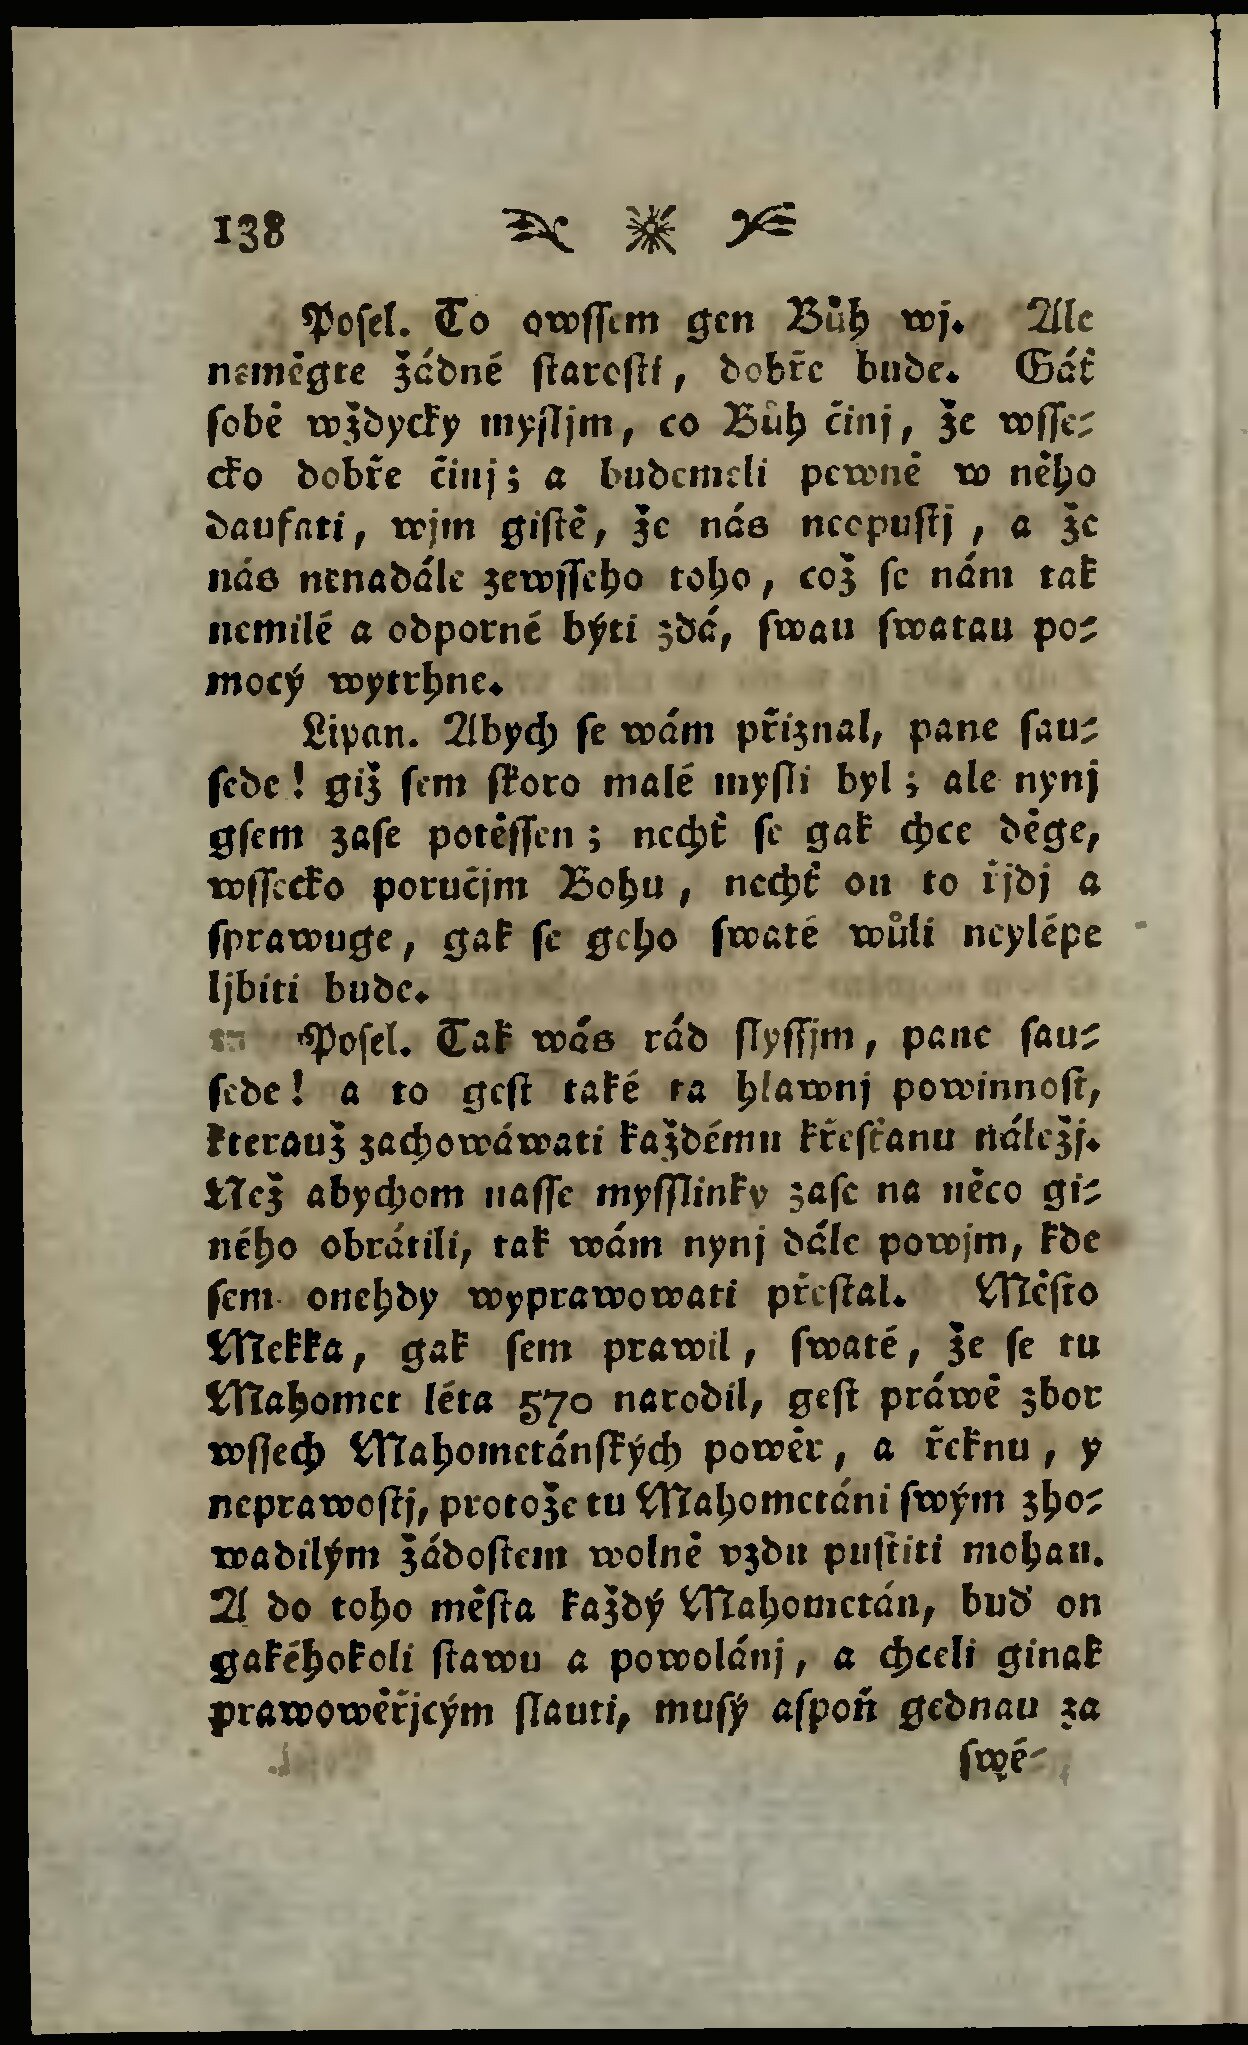 138
Poſel. To owſſem gen Bůh wj. Ale
neměgte žádné ſtaroſti, dobře bude. Gáť
ſobě wždycky myſljm, co Bůh činj, že wſſe⸗
cko dobře činj; a budemeli pewně w něho
daufati, wjm giſtě, že nás neopuſtj, a že
nás nenadále zewſſeho toho, což ſe nám tak
nemilé a odporné býti zdá, ſwau ſwatau po⸗
mocý wytrhne.
Lipan. Abych ſe wám přiznal, pane ſau⸗
ſede! giž ſem ſkoro malé myſli byl; ale nynj
gſem zaſe potěſſen; nechť ſe gak chce děge,
wſſecko poručjm Bohu, nechť on to řjdj a
ſprawuge, gak ſe geho ſwaté wůli neylépe
ljbiti bude.
Poſel. Tak wás rád ſlyſſjm, pane ſau⸗
ſede! a to geſt také ta hlawnj powinnoſt,
kterauž zachowáwati každému křeſťanu náležj.
Než abychom naſſe myſſlinky zaſe na něco gi⸗
ného obrátili, tak wám nynj dále powjm, kde
ſem onehdy wyprawowati přeſtal. Měſto
Mekka, gak ſem prawil, ſwaté, že ſe tu
Mahomet léta 570 narodil, geſt práwě zbor
wſſech Mahometánſkých powěr, a řeknu, y
neprawoſtj, protože tu Mahometáni ſwým zho⸗
wadilým žádoſtem wolně vzdu puſtiti mohau.
A do toho měſta každý Mahometán, buď on
gakéhokoli ſtawu a powolánj, a chceli ginak
prawowěřjcým ſlauti, muſý aſpoň gednau za
ſwé⸗